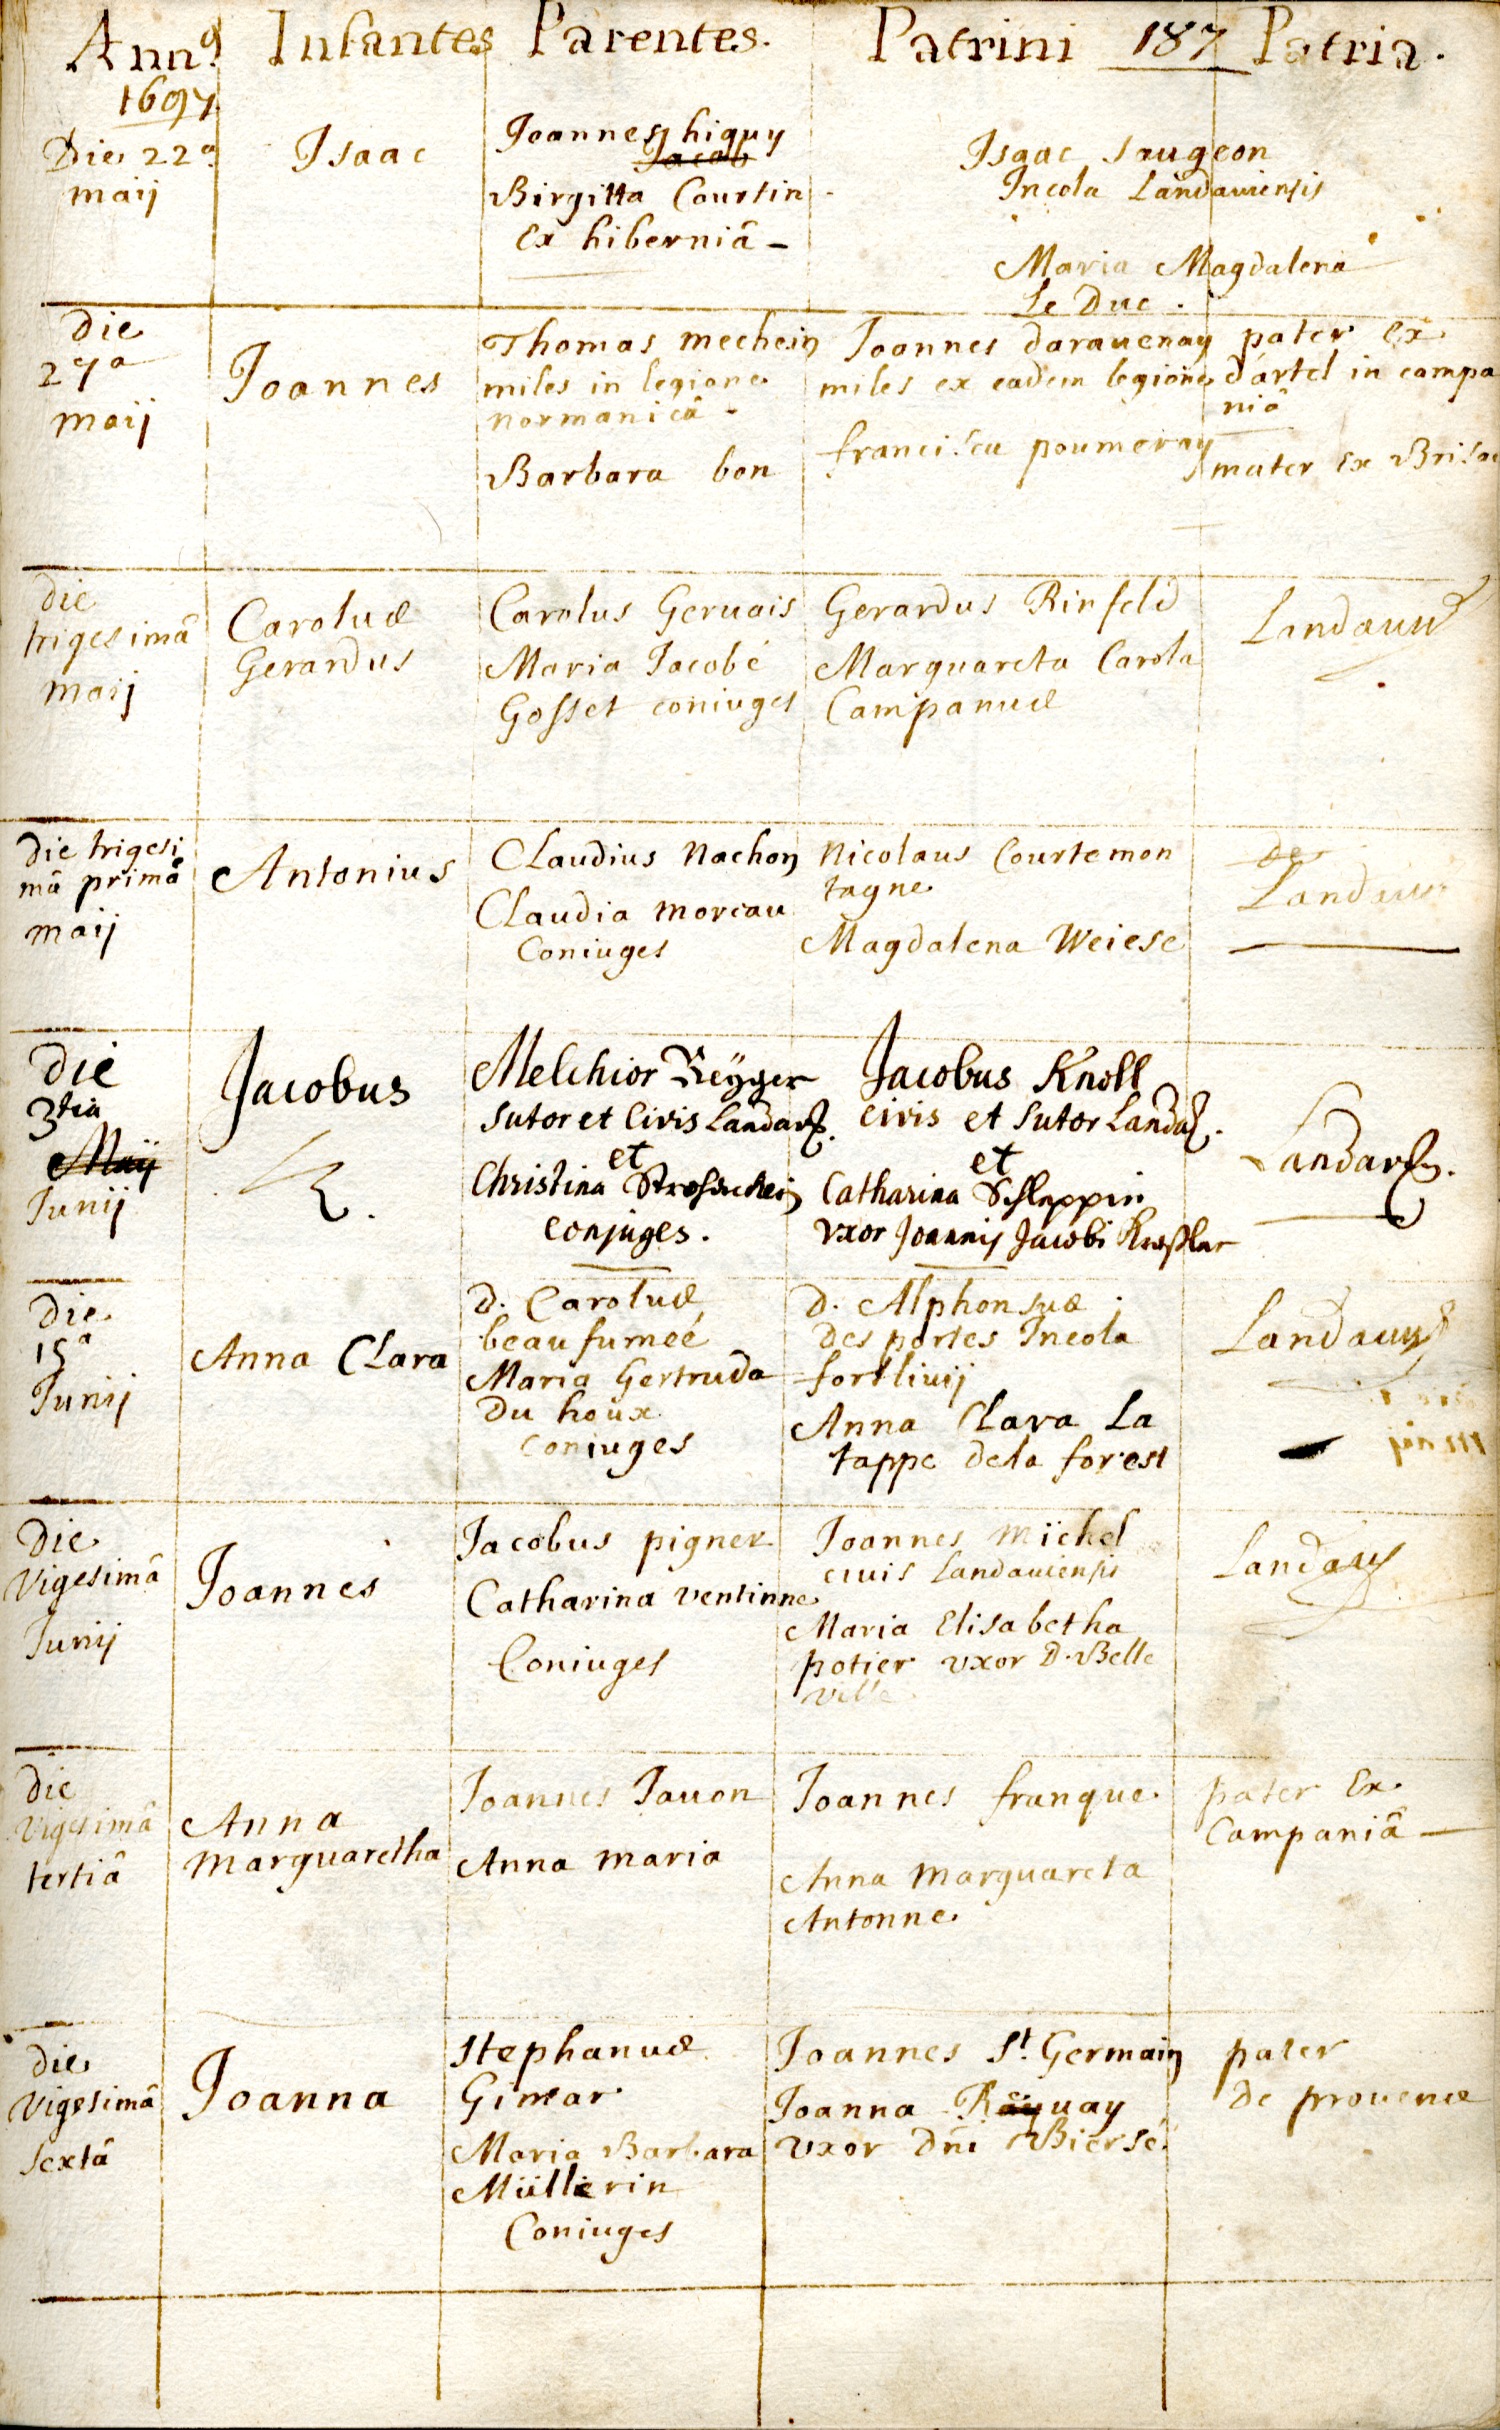 Anno Infantes Parentes. Patrini 187 Patria.
1697
Die 22a
maij
Isaac
Joannes higuy
Jacob
Birgitta Courtin
ex hiberniâ
Isaac saugeon
Incola Landauiensis
Maria Magdalena
Le Duc.
die
27a
maij
Joannes
Thomas mechein
miles in legione
normanicâ
Barbara bon
Joannes darauenay
miles ex eadem legione
francisca poumeray
pater ex
d'artel in campa
niâ
mater ex Brisac
die
trigesimâ
maij
Carolus
Gerardus
Carolus Geruais
Maria Jacobé
Gosset coniuges
Gerardus Rinfeld
Marguareta Carola
Campanus
Landauij
die trigesi
mâ primâ
maij
Antonius
Claudius nachon
Claudia moreau
Coniuges
Nicolaus Courtemon
tagne
Magdalena Weiese
de
Landau
Die
3tia
Maij
Junij
Jacobus
Melchior Reÿger
sutor et Civis Landav.
et
Christina
conjuges.
Jacobus Knoll
civis et sutor Landa.
et
Catharina Schlappin
vxor Joannis Jacobi
Landav.
die
15a
Junij
Anna Clara
D. Carolus
beaufumeé
Maria Gertruda
du houx
coniuges
D. Alphonsus
des portes Incola
fortliuij
Anna Clara La
tappe dela forest
Landauij
die
vigesimâ
Junij
Joannes
Jacobus pigner
Catharina ventinne
Coniuges
Joannes mïchel
ciuis Landauiensis
Maria Elisabetha
potier vxor D. Belle
ville
Landau
die
vigesimâ
tertiâ
Anna
Marguaretha
Joannes Jauon
Anna maria
Joannes franque
Anna marguareta
Antonne
pater ex
Campaniâ
die
vigesimâ
sextâ
Joanna
stephanus
Gimar
Maria Barbara
Müllerin
Coniuges
Joannes St. Germain
Joanna
vxor Dni Biersé
pater
de prouence